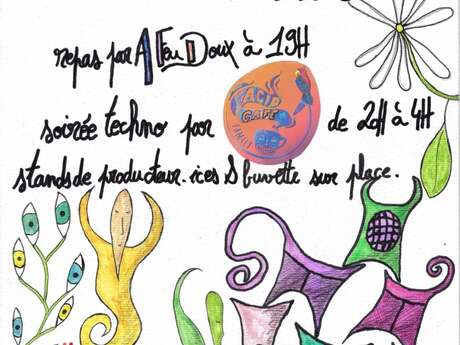 repas par A Feu Doux à 19H
soirée techno par ACID CAFE de 21H à 4H
stands de producteur.ices & buvette sur place.